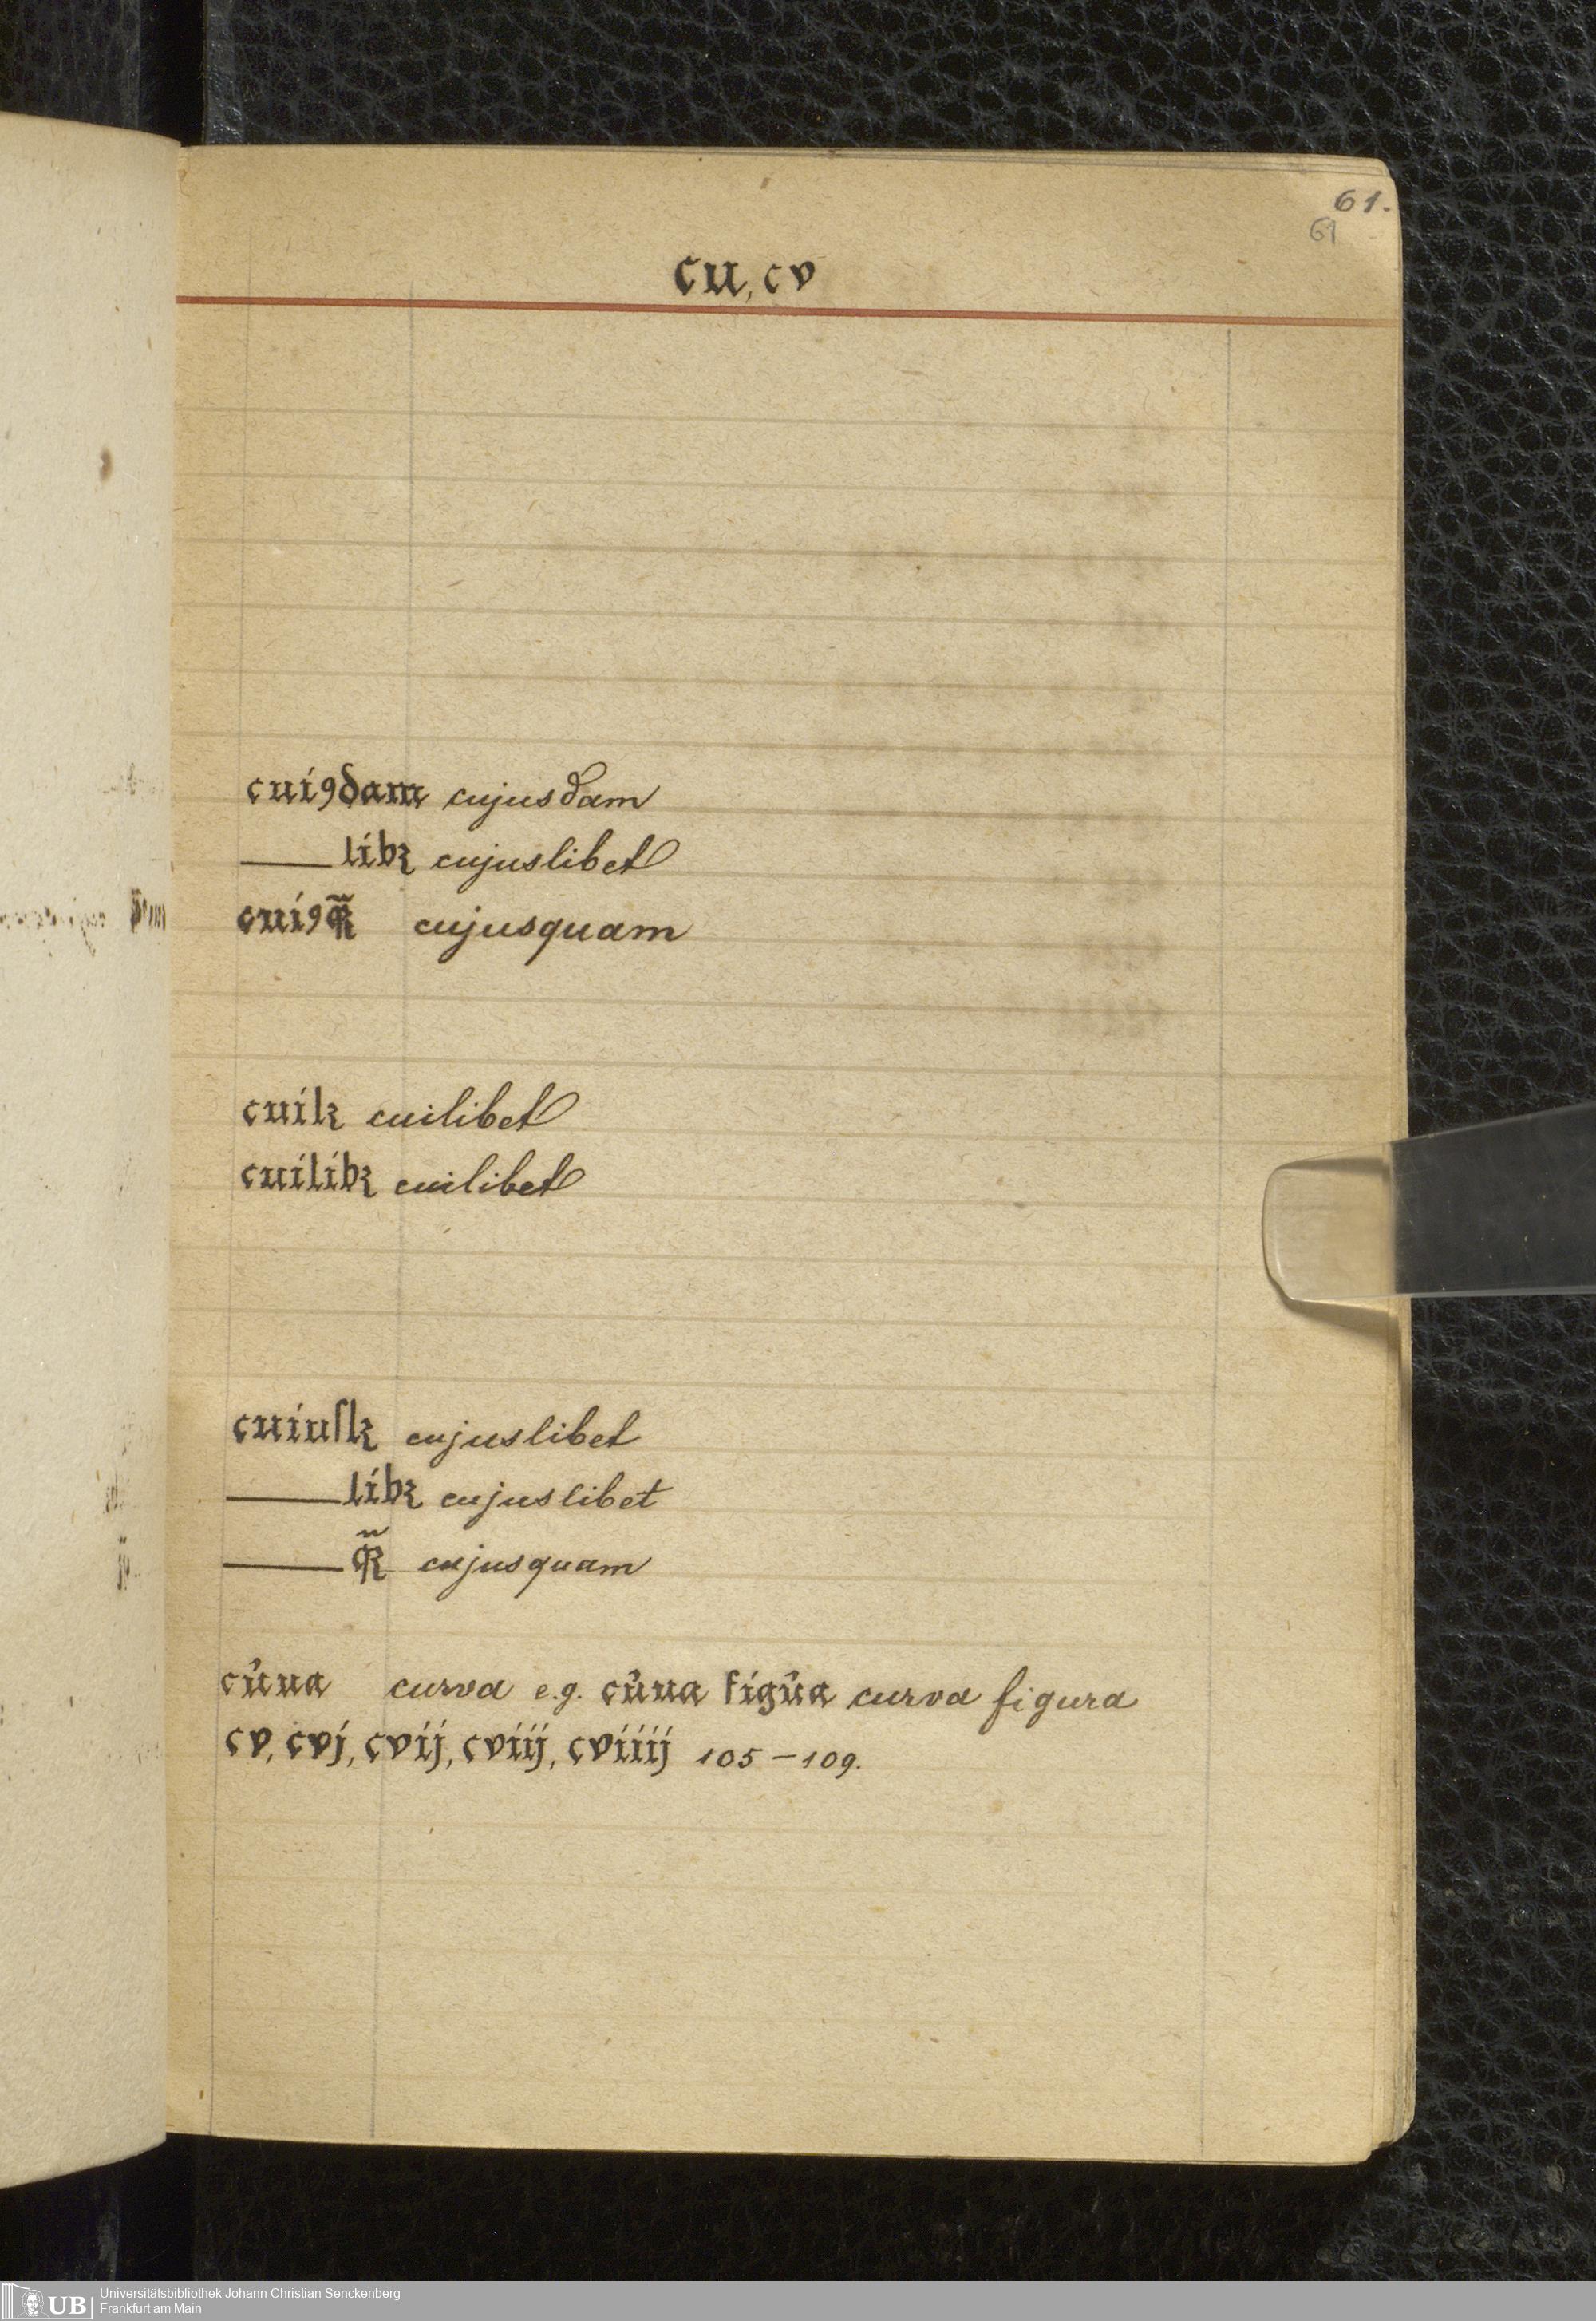 61.
61
cu, cv
cuıꝯdam cujusdam
—— libꝫ cujuslibet
cuiꝯq̃ꝫ cujusquam
cuilꝫ cuilibet
cuilibꝫ cuilibet
cuiuſlꝫ cujuslibet
—— libꝫ cujuslibet
—— q̃ꝫ cujusquam
cûua curva e.g. cûua figûa curva figura
cv, cvj, cvij, cviij, cviiij 105–109.
UB Universitätsbibliothek Johann Christian Senckenberg
Frankfurt am Main